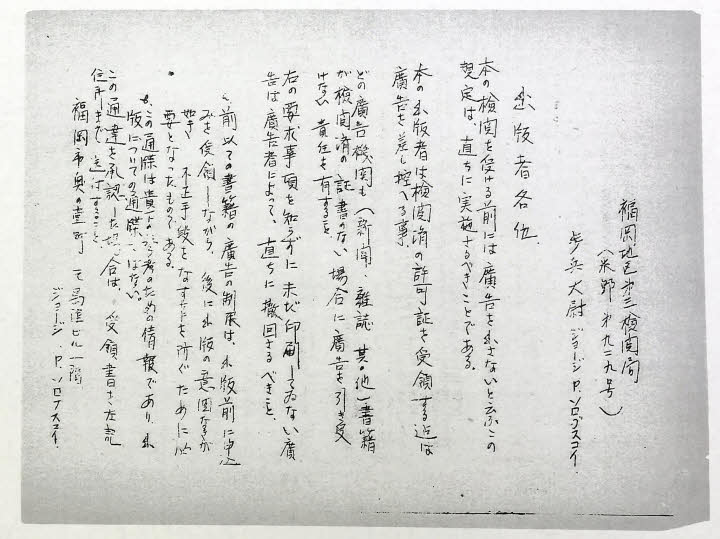 福岡地区第三検閲局
(米野第九二九号)
歩兵大尉 ジョージ P. ソロブスコイ.
出版者各位.
本の検閲を受ける前には廣告を出さないと云ふこの
規定は、直ちに実施さるべきことである。
本の出版者は検閲済の許可証を受領する迄は
廣告を差し控へる事
どの廣告機関も(新聞、雑誌 其の他)書籍
が検閲済の証書のない場合に廣告を引き受
けない責任を有すること.
右の要求事項を知らずに未だ印刷してゐない廣
告は廣告者によって、直ちに撤回さるべきこと.
前以ての書籍の廣告の制限は、出版前に申込
みを受領しながら、後に出版の意図なきが
如き 不正手段をなすことを防ぐために必
要となったものである。
この通牒は貴方の
ための情報であり、出
版についての通牒ではない。
この通達を承認した場合は、受領書を左記
住所まで送付すること.
福岡市奥の堂町
ビル一階
ジョージ. P. ソロブスコイ.